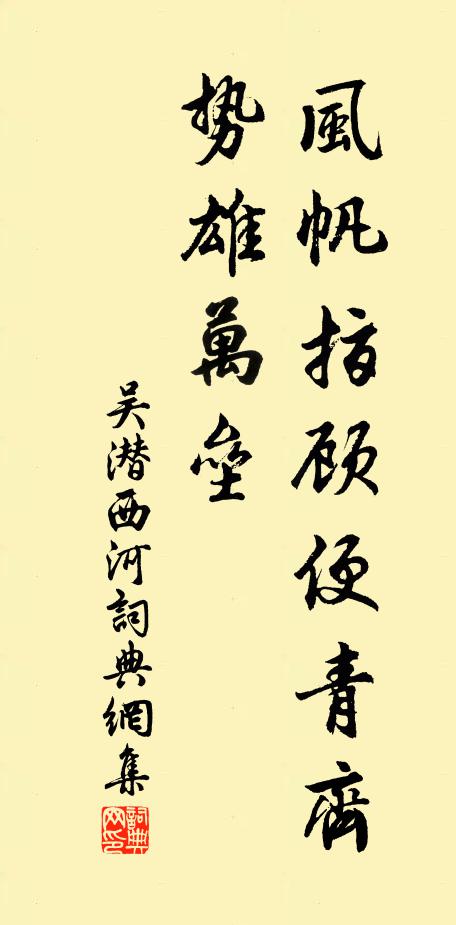 風帆指顾便青齊
势雄萬壘
吴潜西河詞典網集
詞典網印